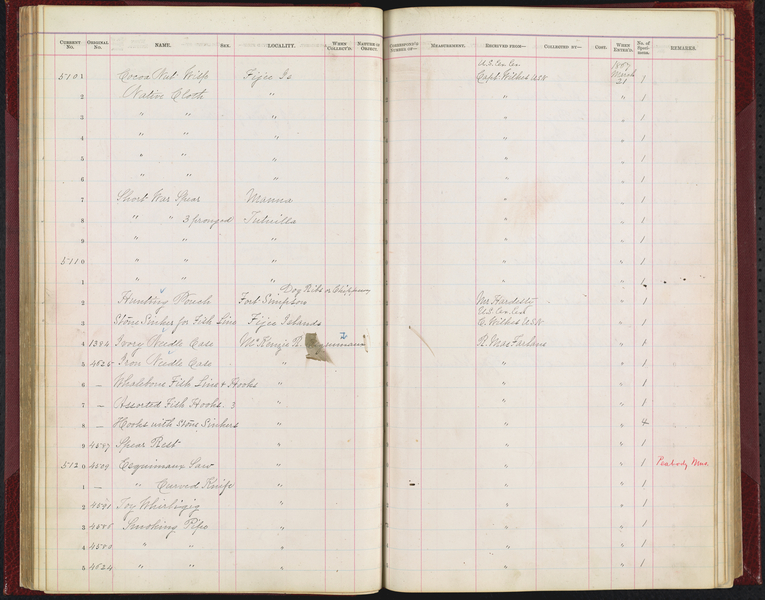 CURRENT No. ORIGINAL No. NAME. SEX. LOCALITY. WHEN COLLECT'D. NATURE OF OBJECT. MEASUREMENT. RECEIVED FROM— COLLECTED BY— COST. WHEN ENTER'D. No. of Speci- mens. REMARKS.
U.S. Ex. Ex. 1867
5101 Cocoa Nut Wisp Fijee Is Capt. Wilkes USN March 21 1
2 Native Cloth " " " 1
3 " " " " " 1
4 " " " " " 1
5 " " " " " 1
6 " " 1
7 Short War Spear Manua " " 1
8 " " 3 pronged Tutuilla " " 1
9 " " " " " 1
5110 " " " " " 1
1 " " " " " 1
Dog Ribs or
2 Hunting Pouch Fort Simpson Mr Hardesty " 1
U.S. Ex. Ex.
3 Stone Sinker for Fish Line Fijee Islands C. Wilkes USN " 1
4 1384 Ivory Needle Case McKenzie R. R. MacFarlane " 1
5 4525 Iron Needle Case " " " 1
6 — Whalebone Fish Line & Hooks " " " 1
7 — Assorted Fish Hooks 3 " " " 1
8 — Hooks with Stone Sinkers " " " 4
9 Spear Rest " " " 1
5120 4509 Esquimaux Saw " " " 1 Peabody Mus.
1 — " Curved Knife " " " 1
2 Toy Whirligig " " " 1
3 Smoking Pipe " " " 1
4 4580 " " " " " 1
5 4624 " " " " " 1